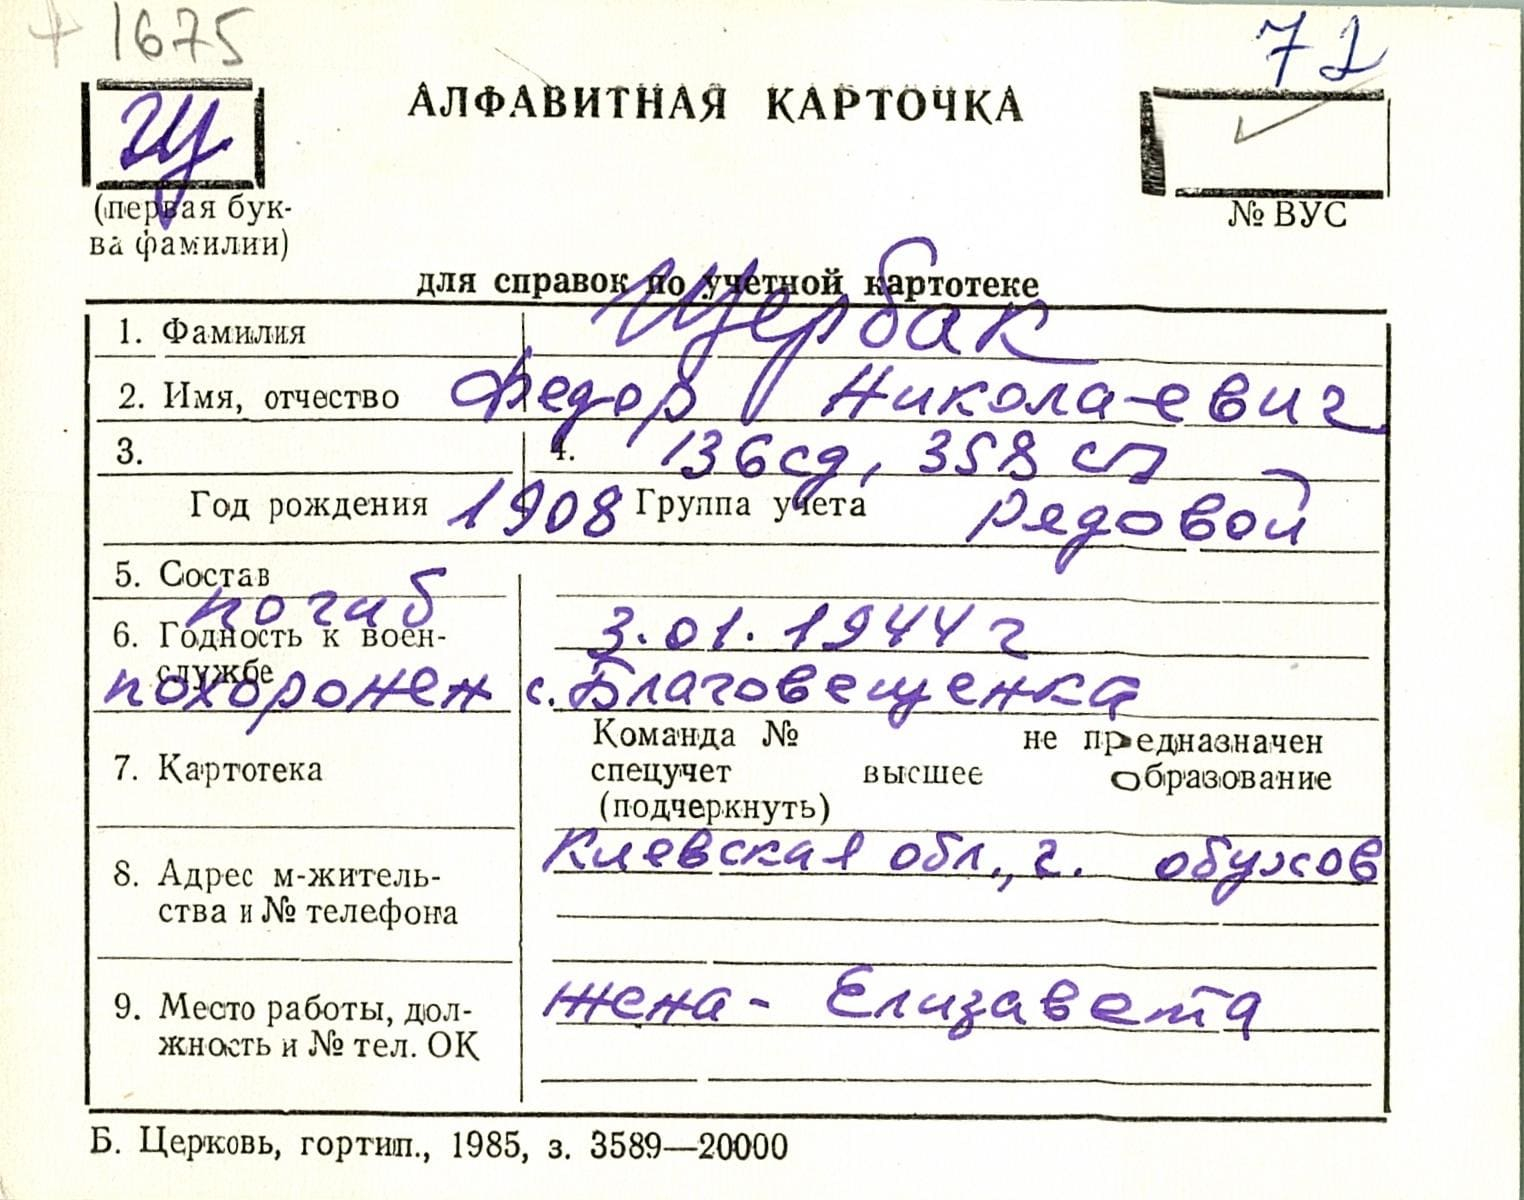 + 1675
72
Щ
АЛФАВИТНАЯ КАРТОЧКА
(первая бук-
ва фамилии)
№ ВУС
для справок по учетной картотеке
1. Фамилия Щербак
2. Имя, отчество Федор Николаевич
3. 4. 136 сд, 358 сп
Год рождения 1908 Группа учета рядовой
5. Состав
погиб 3.01.1944 г
6. Годность к воен-
службе
похоронен с. Благовещенка
Команда № не предназначен
7. Картотека спецучет высшее образование
(подчеркнуть)
Киевская обл., г. обухов
8. Адрес м-житель-
ства и № телефона
жена - Елизавета
9. Место работы, дол-
жность и № тел. ОК
Б. Церковь, гортип., 1985, з. 3589—20000